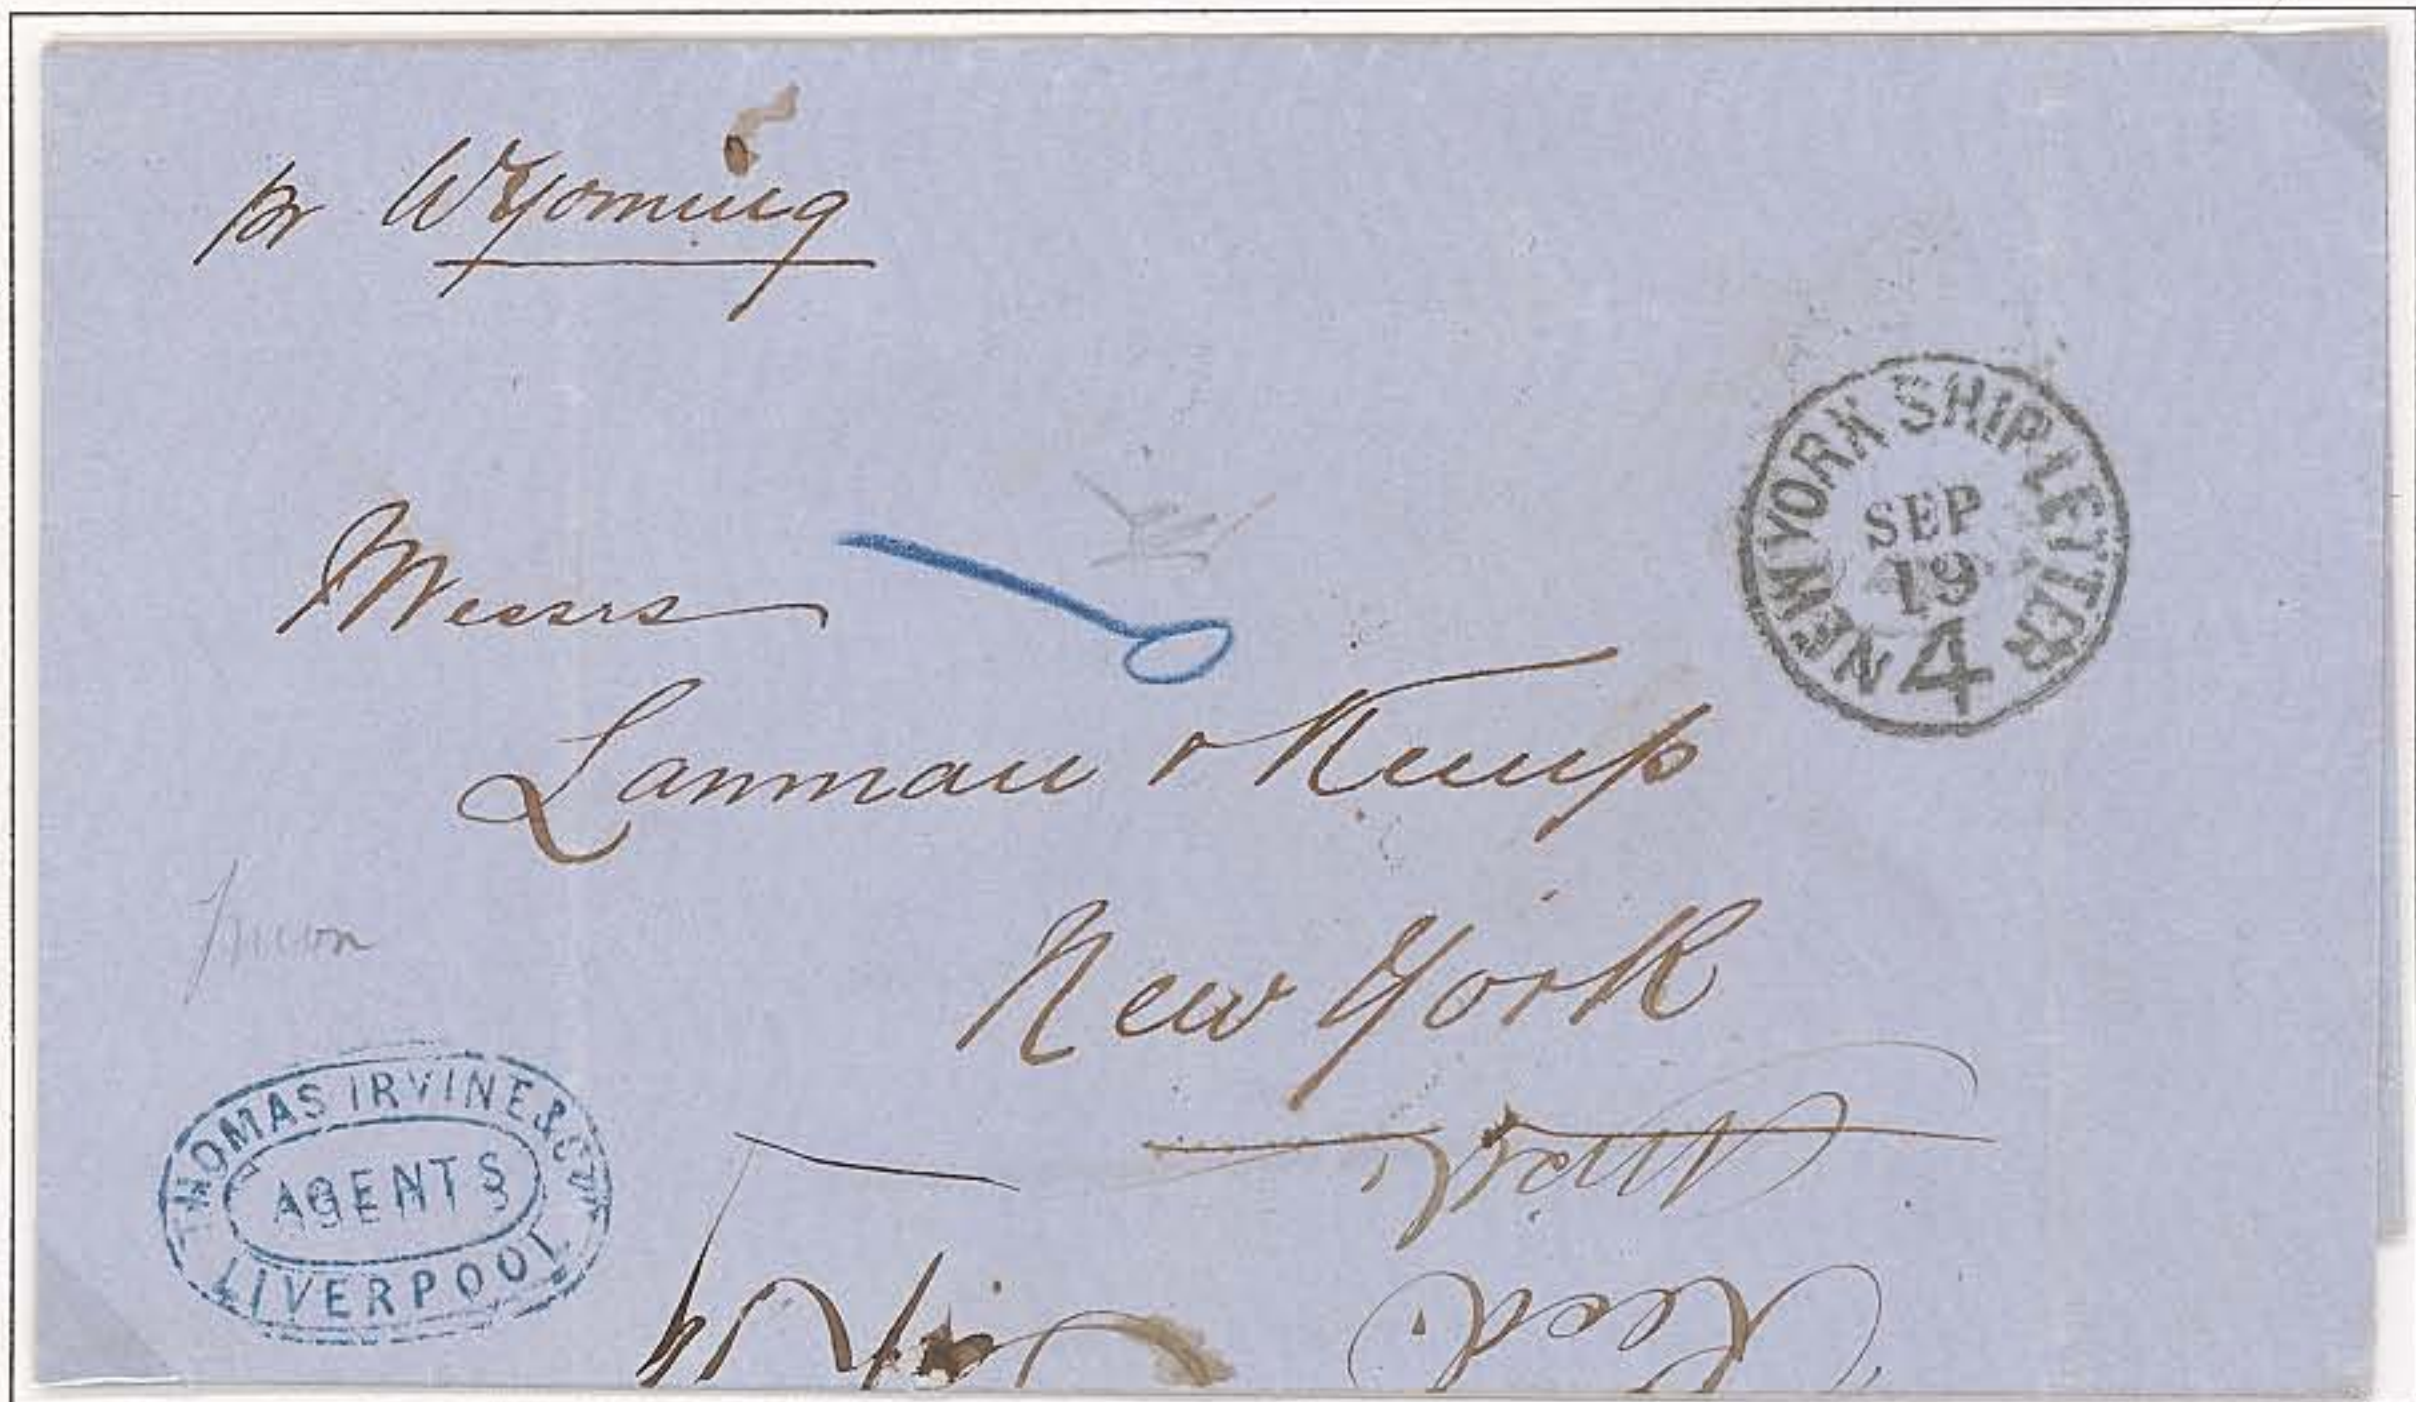 pr Wyoming
NEW YORK SHIP LETTER
SEP
19
4
Messrs
Lanman & Kemp
New York
THOMAS IRVINE & CO
AGENTS
LIVERPOOL
Recd.